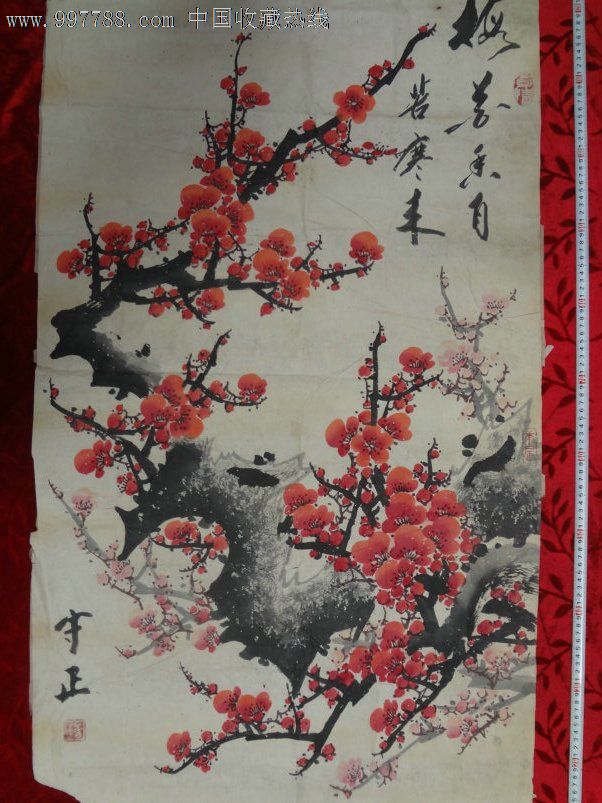 www.997788.com 中国收藏热线
梅花香自
苦寒来
宇正